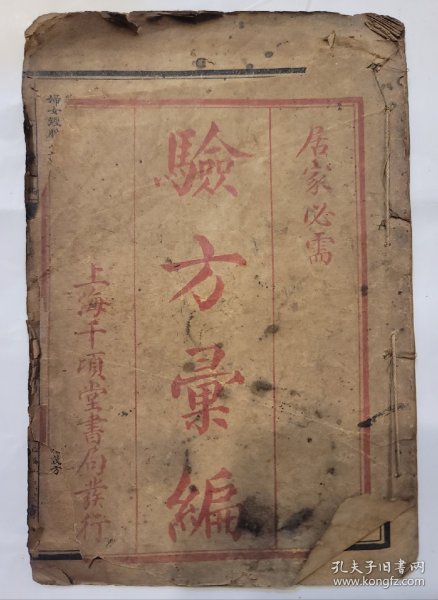 居家必需
驗方彙編
上海千頃堂書局發行
孔夫子旧书网
www.kongfz.com